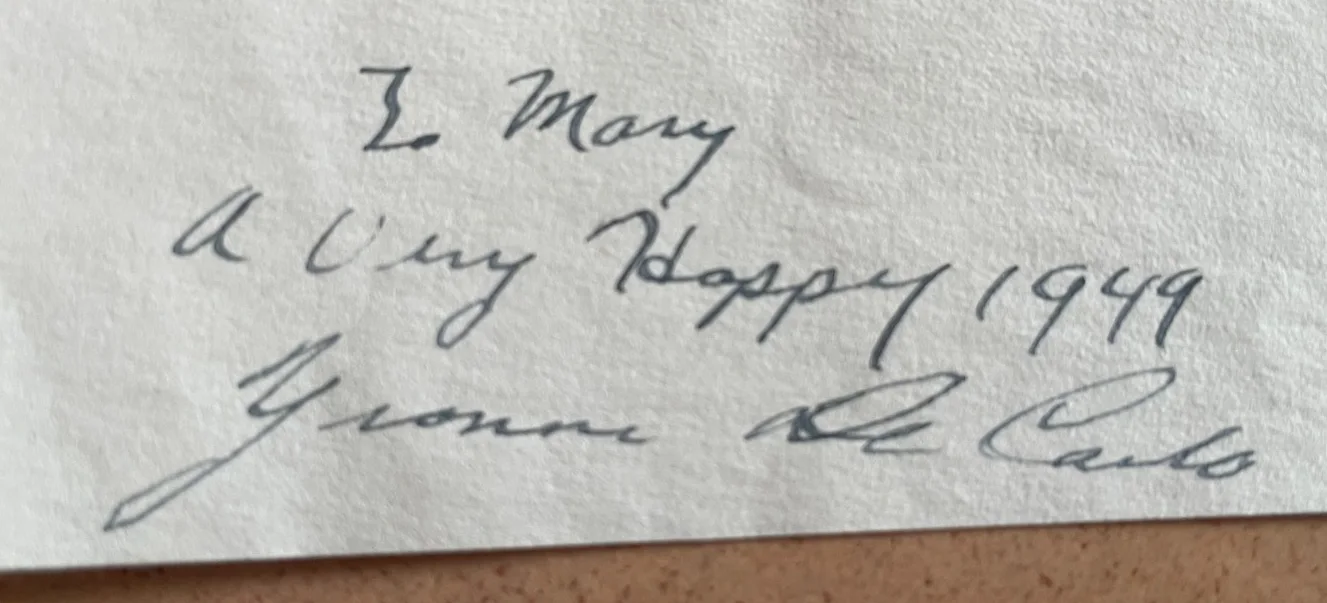 To Mary
A Very Happy 1949
Yvonne De Carlo